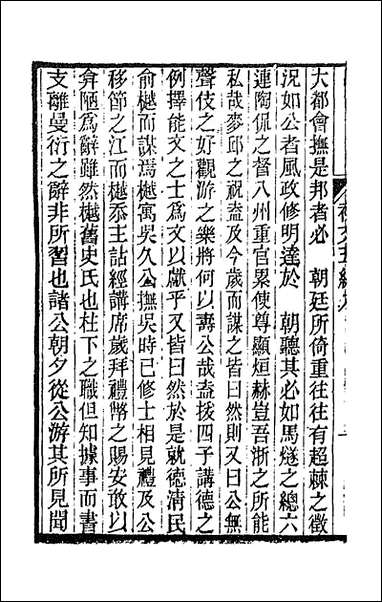 大都會撫是邦者必　朝廷所倚重往往有超棘之徵
況如公者風政修明達於　朝聽其必如馬燧之總六
連陶侃之督八州重官累使尊顯烜赫豈吾浙之所能
私哉麥邱之祝盍及今歲而謀之皆曰然則又曰公無
聲伎之好觀游之樂將何以壽公哉盍援四子講德之
例擇能文之士爲文以獻乎又皆曰然於是就德清民
俞樾而謀焉樾寓吳久公撫吳時已修士相見禮及公
移節之江而樾忝主詁經講席歲拜禮幣之賜安敢以
弇陋爲辭雖然樾舊史氏也柱下之職但知據事而書
支離曼衍之辭非所習也諸公朝夕從公游其所見聞